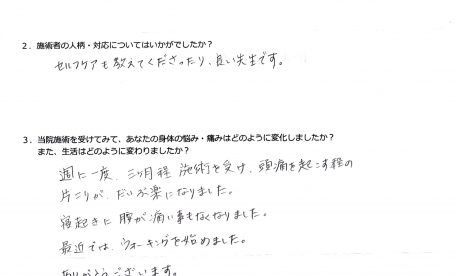 2．施術者の人柄・対応についてはいかがでしたか？
セルフケアも教えてくださったり、良い先生です。
3．当院施術を受けてみて、あなたの身体の悩み・痛みはどのように変化しましたか？
また、生活はどのように変わりましたか？
週に一度、三ヶ月程 施術を受け、頭痛を起こす程の
片こりが、だいぶ楽になりました。
寝起きに腰が痛い事もなくなりました。
最近では、ウォーキングを始めました。
ありがとうございます。